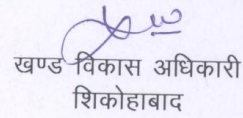 खण्ड विकास अधिकारी
शिकोहाबाद